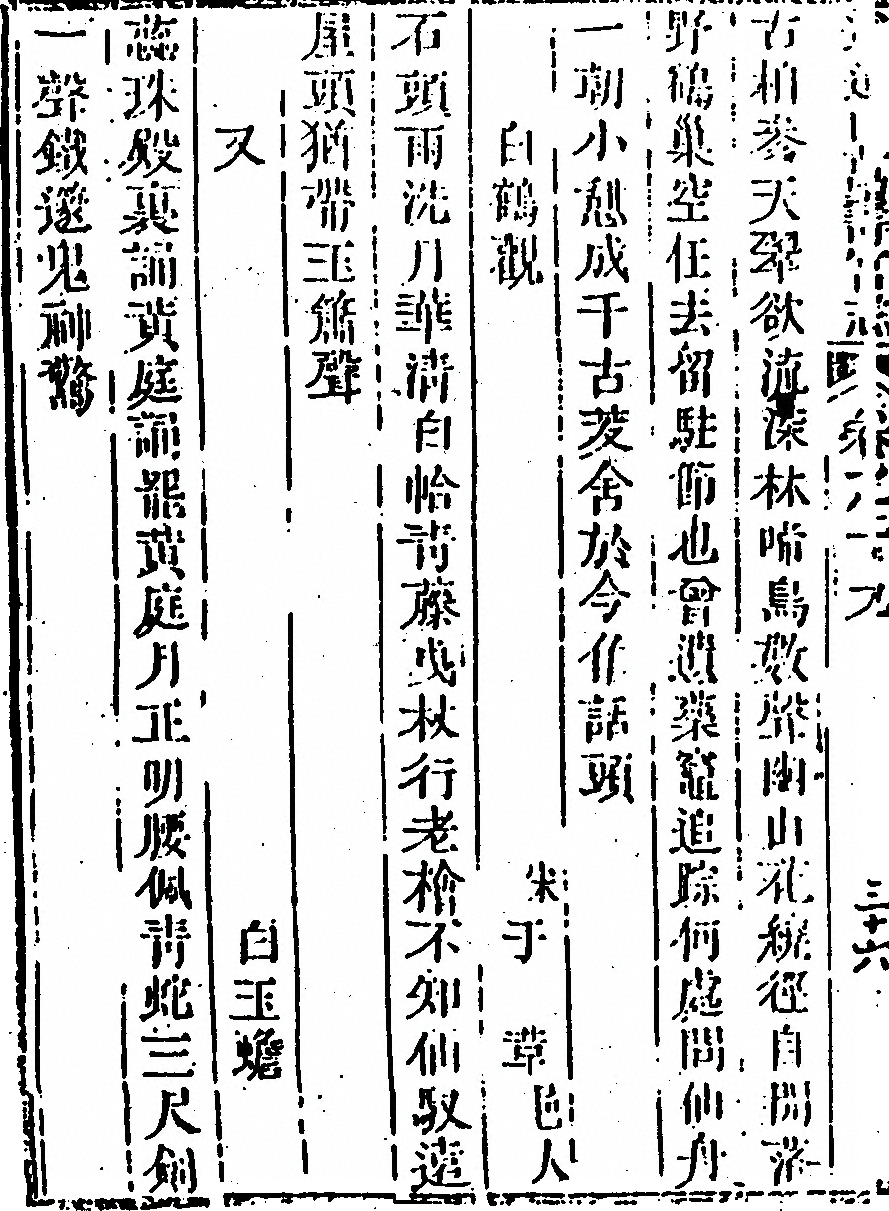 卷六十九
三十六
古柏參天翠欲流深林啼鳥數聲幽山花繞徑自開落
野鶴巢空任去留駐節也曾遺藥竈追踪何處問仙舟
一朝小憩成千古茇舍於今作話頭
白鶴觀 宋 于革 邑人
石頭雨洗月華清白帢青藤曵杖行老檜不知仙馭遠
崖頭猶帶玉簫聲
又 白玉蟾
蕊珠殿裏誦黄庭誦罷黄庭月正明腰佩青蛇三尺劍
一聲鐵邃鬼神驚